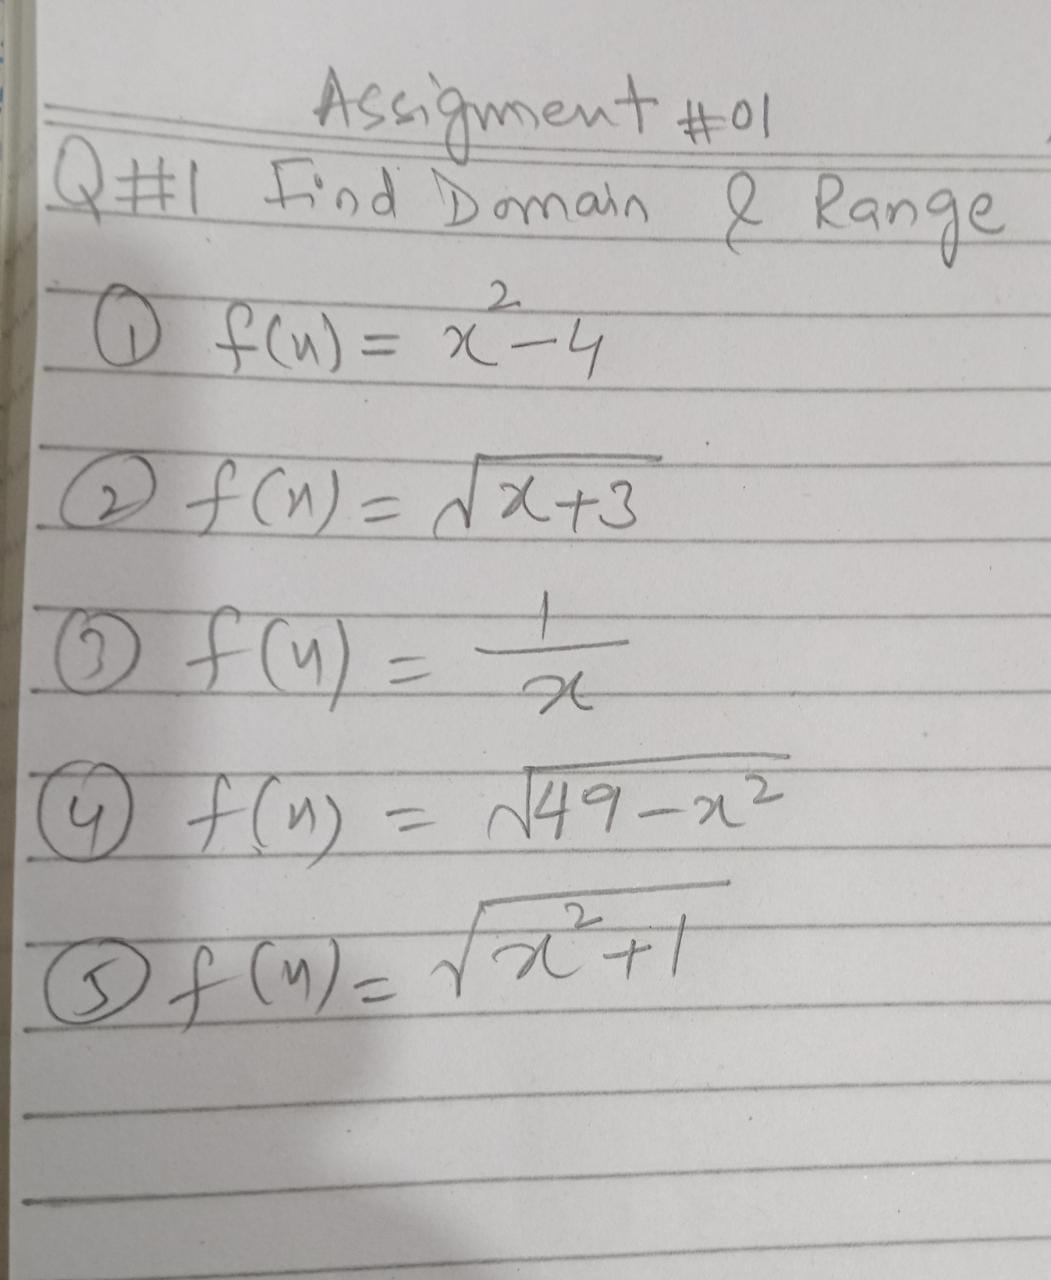 Assigment #01
Q#1 Find Domain & Range
① f(x) = x² - 4
② f(x) = √x+3
③ f(x) = 1/x
④ f(x) = √49-x²
⑤ f(x) = √x²+1